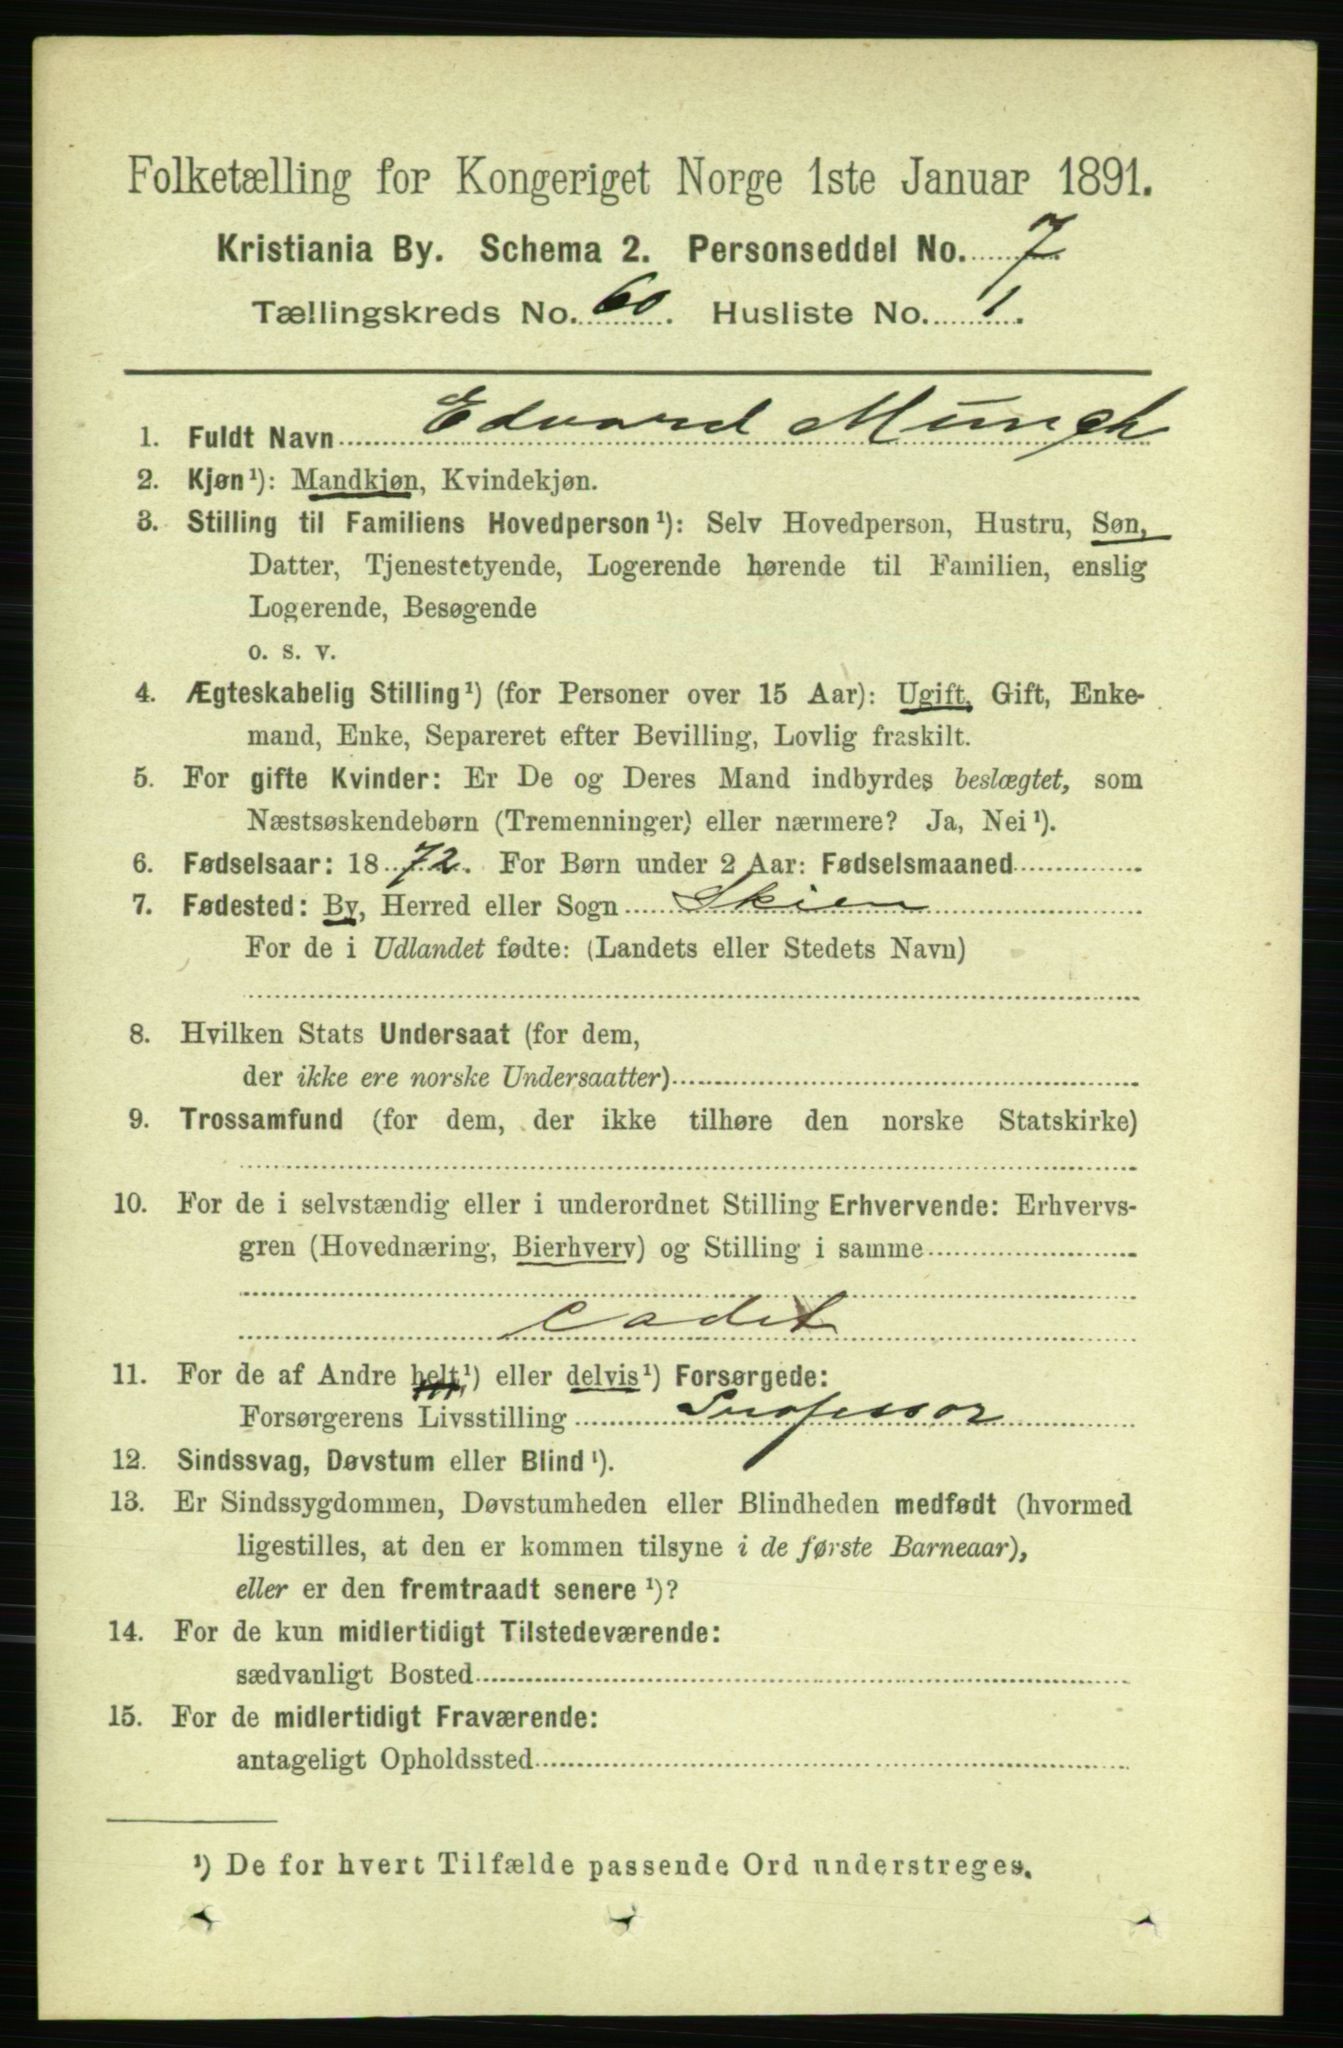 Folketælling for Kongeriget Norge 1ste Januar 1891.
Kristiania By. Schema 2. Personseddel No. 7.
Tællingskreds No. 60. Husliste No. 1.
1. Fuldt Navn Edvard Munch
2. Kjøn¹): Mandkjøn, Kvindekjøn.
3. Stilling til Familiens Hovedperson¹): Selv Hovedperson, Hustru, Søn,
Datter, Tjenestetyende, Logerende hørende til Familien, enslig
Logerende, Besøgende
o. s. v.
4. Ægteskabelig Stilling¹) (for Personer over 15 Aar): Ugift, Gift, Enke-
mand, Enke, Separeret efter Bevilling, Lovlig fraskilt.
5. For gifte Kvinder: Er De og Deres Mand indbyrdes beslægtet, som
Næstsøskendebørn (Tremenninger) eller nærmere? Ja, Nei¹).
6. Fødselsaar: 1872. For Børn under 2 Aar: Fødselsmaaned
7. Fødested: By, Herred eller Sogn Skien
For de i Udlandet fødte: (Landets eller Stedets Navn)
8. Hvilken Stats Undersaat (for dem,
der ikke ere norske Undersaatter)
9. Trossamfund (for dem, der ikke tilhøre den norske Statskirke)
10. For de i selvstændig eller i underordnet Stilling Erhvervende: Erhvervs-
gren (Hovednæring, Bierhverv) og Stilling i samme
Cadet
11. For de af Andre helt¹) eller delvis¹) Forsørgede:
Forsørgerens Livsstilling Professor
12. Sindssvag, Døvstum eller Blind¹).
13. Er Sindssygdommen, Døvstumheden eller Blindheden medfødt (hvormed
ligestilles, at den er kommen tilsyne i de første Barneaar),
eller er den fremtraadt senere¹)?
14. For de kun midlertidigt Tilstedeværende:
sædvanligt Bosted
15. For de midlertidigt Fraværende:
antageligt Opholdssted
¹) De for hvert Tilfælde passende Ord understreges.